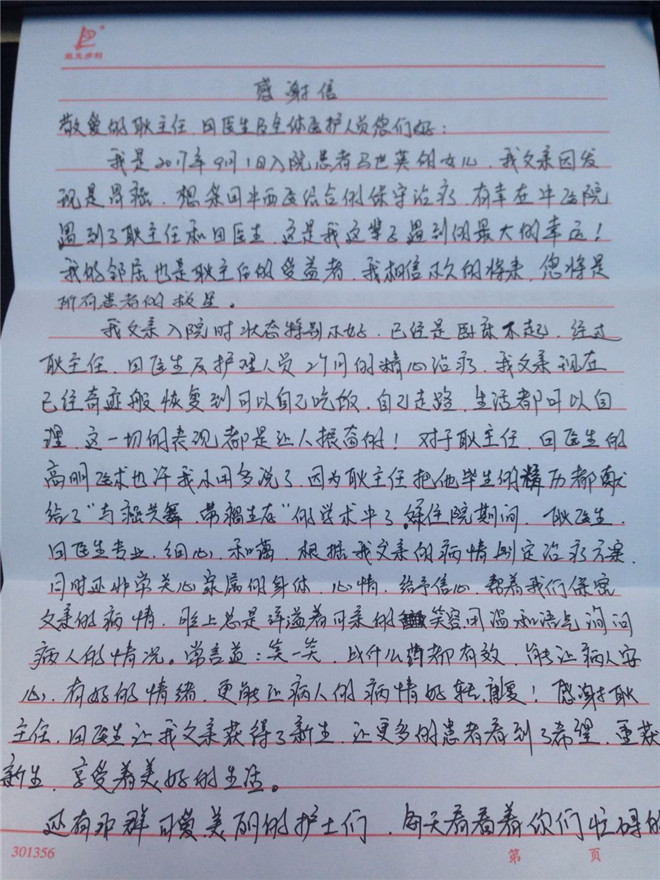 感谢信
敬爱的耿主任、田医生及全体医护人员您们好：
我是2017年9月1日入院患者马世英的女儿，我父亲因发
现是胃癌，想采用中西医结合的保守治疗，有幸在中医院
遇到了耿主任和田医生，这是我这辈子遇到的最大的幸运！
我的邻居也是耿主任的受益者，我相信不久的将来，您将是
所有患者的救星。
我父亲入院时状态特别不好，已经是卧床不起，经过
耿主任、田医生及护理人员2个月的精心治疗，我父亲现在
已经奇迹般恢复到可以自己吃饭，自己走路，生活都可以自
理，这一切的表现都是让人振奋的！对于耿主任、田医生的
高明医术也许我不用多说了，因为耿主任把他毕生的精历都献
给了“与癌共舞，带瘤生存”的学术中了。在住院期间，耿医生、
田医生专业、细心、和蔼，根据我父亲的病情制定治疗方案，
同时还非常关心家属的身体、心情，给予信心，帮着我们保密
父亲的病情，脸上总是洋溢着可亲的笑容用温和语气询问
病人的情况。常言道：笑一笑，比什么药都有效，能让病人安
心，有好的情绪，更能让病人的病情好转、康复！感谢耿
主任、田医生让我父亲获得了新生，让更多的患者看到了希望，重获
新生，享受着美好的生活。
还有那群可爱、美丽的护士们，每天看着你们忙碌的
301356
第 页